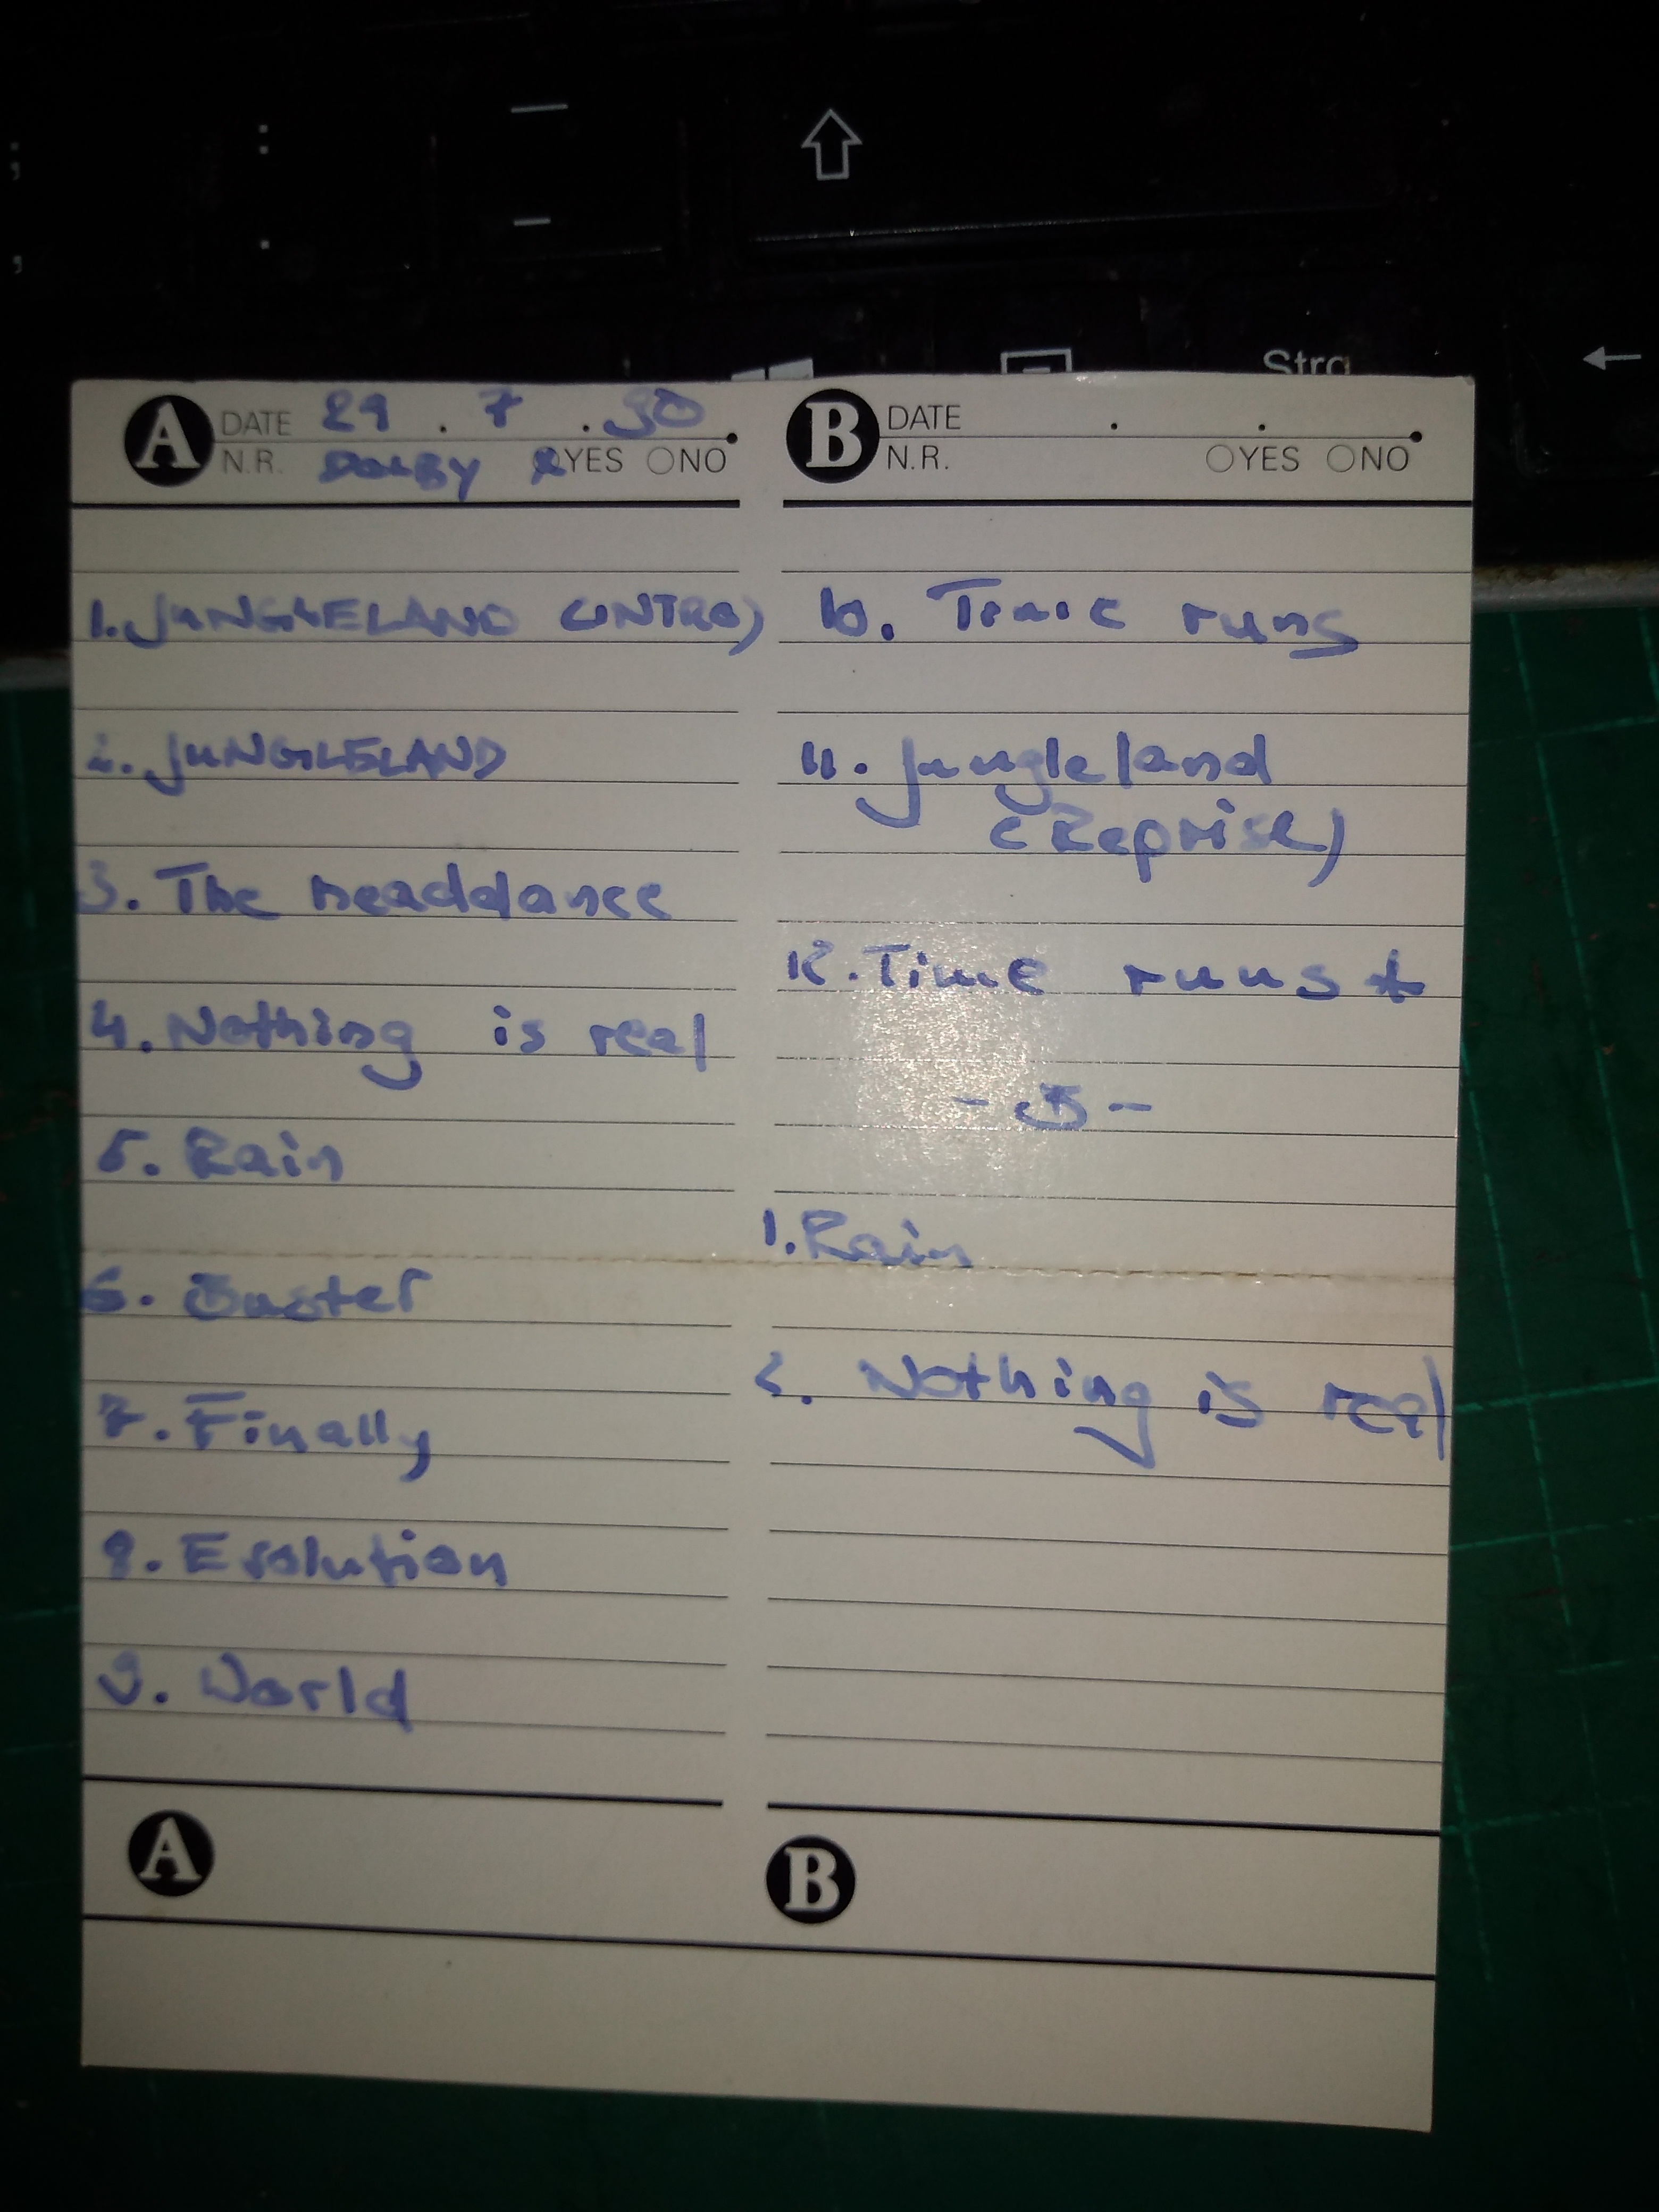 ;
:
—
,
.
-
Strg
A DATE 29 . 7 . 90
N.R. DOLBY YES NO
1. JUNGLELAND (INTRO)
2. JUNGLELAND
3. The headdance
4. Nothing is real
5. Rain
6. Buster
7. Finally
8. Evolution
9. World
A
B DATE . .
N.R. YES NO
10. Time runs
11. Jungleland
(Reprise)
12. Time runs +
- B -
1. Rain
2. Nothing is real
B